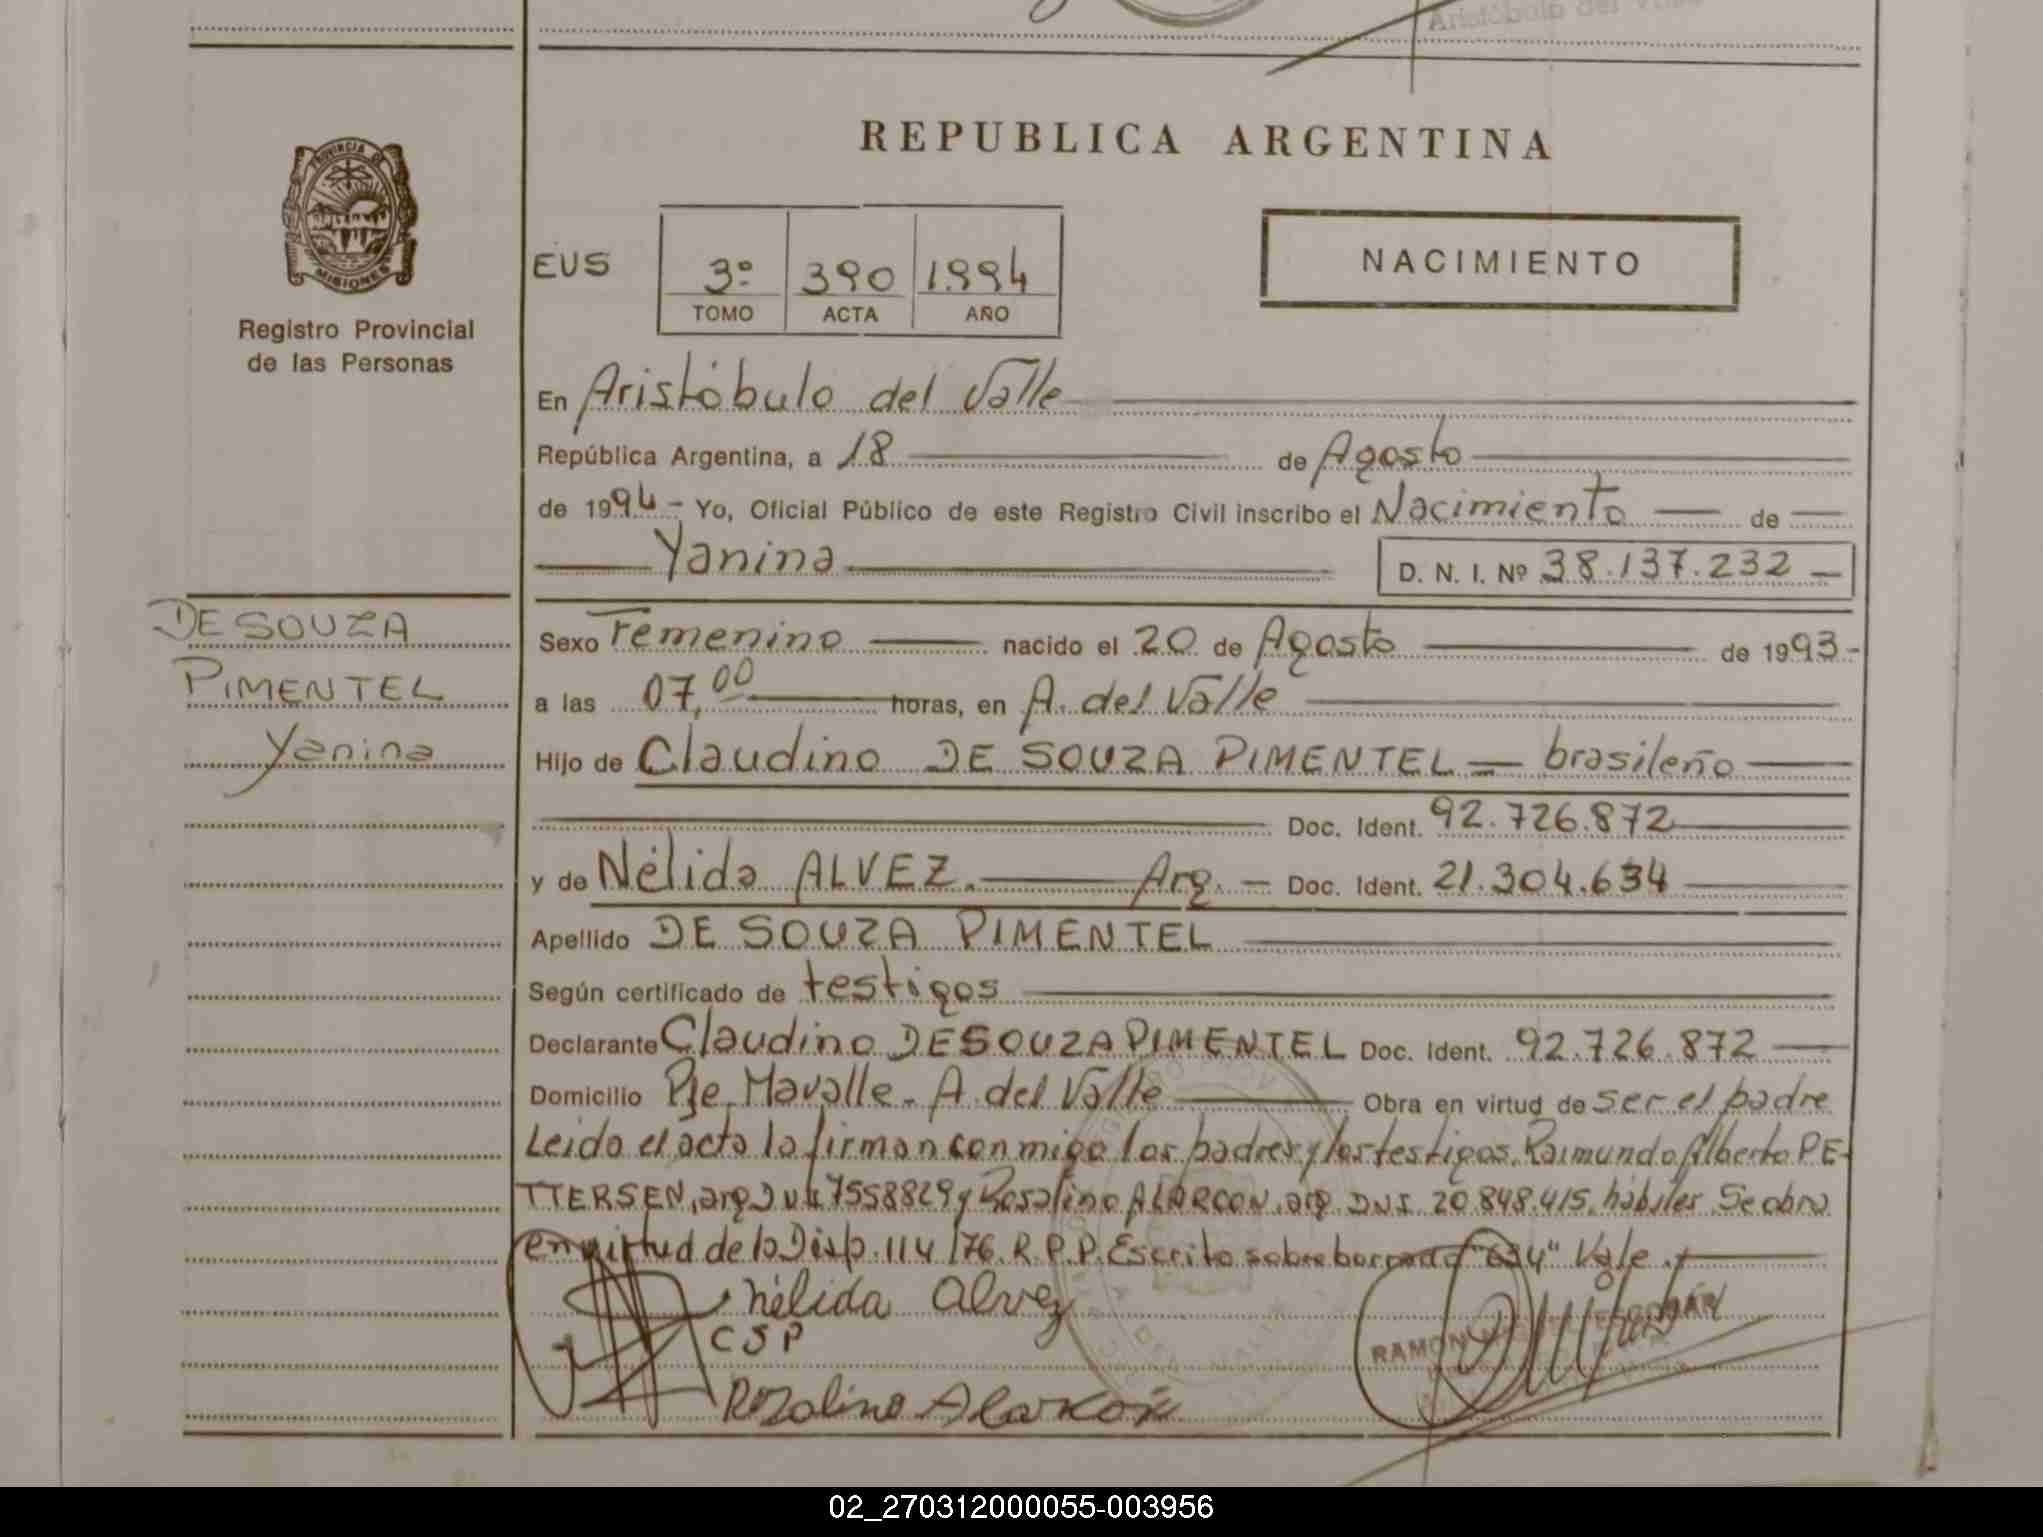 Aristóbulo del Valle
REPUBLICA ARGENTINA
PROVINCIA DE
MISIONES
Registro Provincial
de las Personas
EUS
3º 390 1.994
TOMO ACTA AÑO
NACIMIENTO
En Aristóbulo del Valle
República Argentina, a 18 de Agosto
de 1994 - Yo, Oficial Público de este Registro Civil inscribo el Nacimiento de
Yanina D. N. I. Nº 38.137.232
DE SOUZA
PIMENTEL
Yanina
Sexo Femenino nacido el 20 de Agosto de 1993-
a las 07,00 horas, en A. del Valle
Hijo de Claudino DE SOUZA PIMENTEL brasileño
Doc. Ident. 92.726.872
y de Nélida ALVEZ. Arg. Doc. Ident. 21.304.634
Apellido DE SOUZA PIMENTEL
Según certificado de testigos
Declarante Claudino DE SOUZA PIMENTEL Doc. Ident. 92.726.872
Domicilio Pje. Mavalle - A. del Valle Obra en virtud de ser el padre
Leido el acta la firman conmigo los padres y los testigos, Raimundo Alberto PE-
TTERSEN, arg. DNI 7558829 y Rosalino ALARCON, arg. DNI. 20.848.415, hábiles. Se obra
en virtud de la Disp. 114/76. R.P.P. Escrito sobre borrado "634" Vale.
Nélida Alvez
CSP
Rozalino Alarcón
RAMON ESCOBAR
02_270312000055-003956